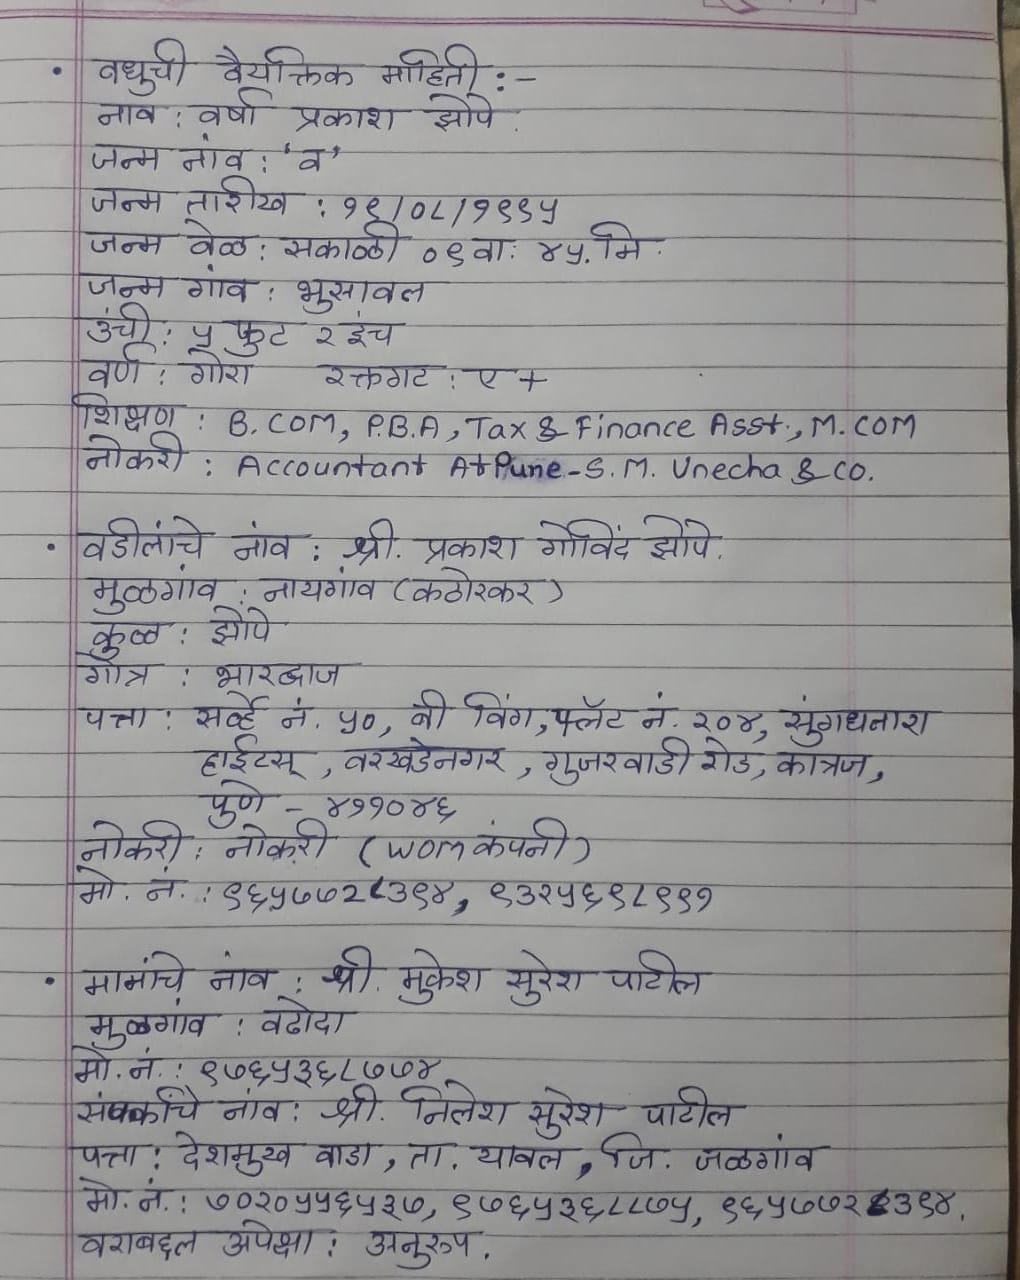 • वधुची वैयक्तिक माहिती :-
नाव : वर्षा प्रकाश झोपे.
जन्म नांव : 'व'
जन्म तारीख : १९/०८/१९९५
जन्म वेळ : सकाळी ०९ वा. ४५. मि.
जन्म गांव : भुसावल
उंची : ५ फुट २ इंच
वर्ण : गोरा रक्तगट : ए +
शिक्षण : B. COM, P.B.A, Tax & Finance Asst., M. COM
नोकरी : Accountant At Pune - S. M. Unecha & CO.
• वडीलांचे नांव : श्री. प्रकाश गोविंद झोपे.
मुळगांव : नायगांव (कठोरकर)
कुळ : झोपे
गोत्र : भारद्वाज
पत्ता : सर्व्हे नं. ५०, बी विंग, फ्लॅट नं. २०४, सुंगधतारा
हाईटस्, वरखडेनगर, गुजरवाडी रोड, कात्रज,
पुणे - ४११०४६
नोकरी : नोकरी (WOM कंपनी)
मो. नं. : ९६५७७२८३९४, ९३२५६९८९९१
• मामांचे नांव : श्री. मुकेश सुरेश पाटील
मुळगांव : वढोदा
मो. नं. : ९७६५३६८७७४
संपर्काचे नांव : श्री. निलेश सुरेश पाटील
पत्ता : देशमुख वाडा, ता. यावल, जि. जळगांव
मो. नं. : ७०२०५५६५३७, ९७६५३६८८७५, ९६५७७२८३९४.
वराबद्दल अपेक्षा : अनुरुप.